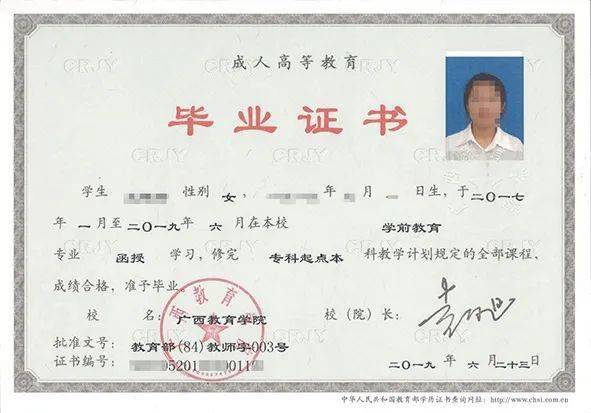 成人高等教育
毕业证书
学生 性别 女, 年 月 日生,于二〇一七
年 一 月至 二〇一九 年 六 月在本校 学前教育
专业 函授 学习,修完 专科起点本 科教学计划规定的全部课程,
成绩合格,准予毕业。
校 名: 广西教育学院 校(院)长:
批准文号: 教育部(84)教师字003号
证书编号: 5201 0011 二〇一九 年 六 月 二十三 日
中华人民共和国教育部学历证书查询网址: http://www.chsi.com.cn